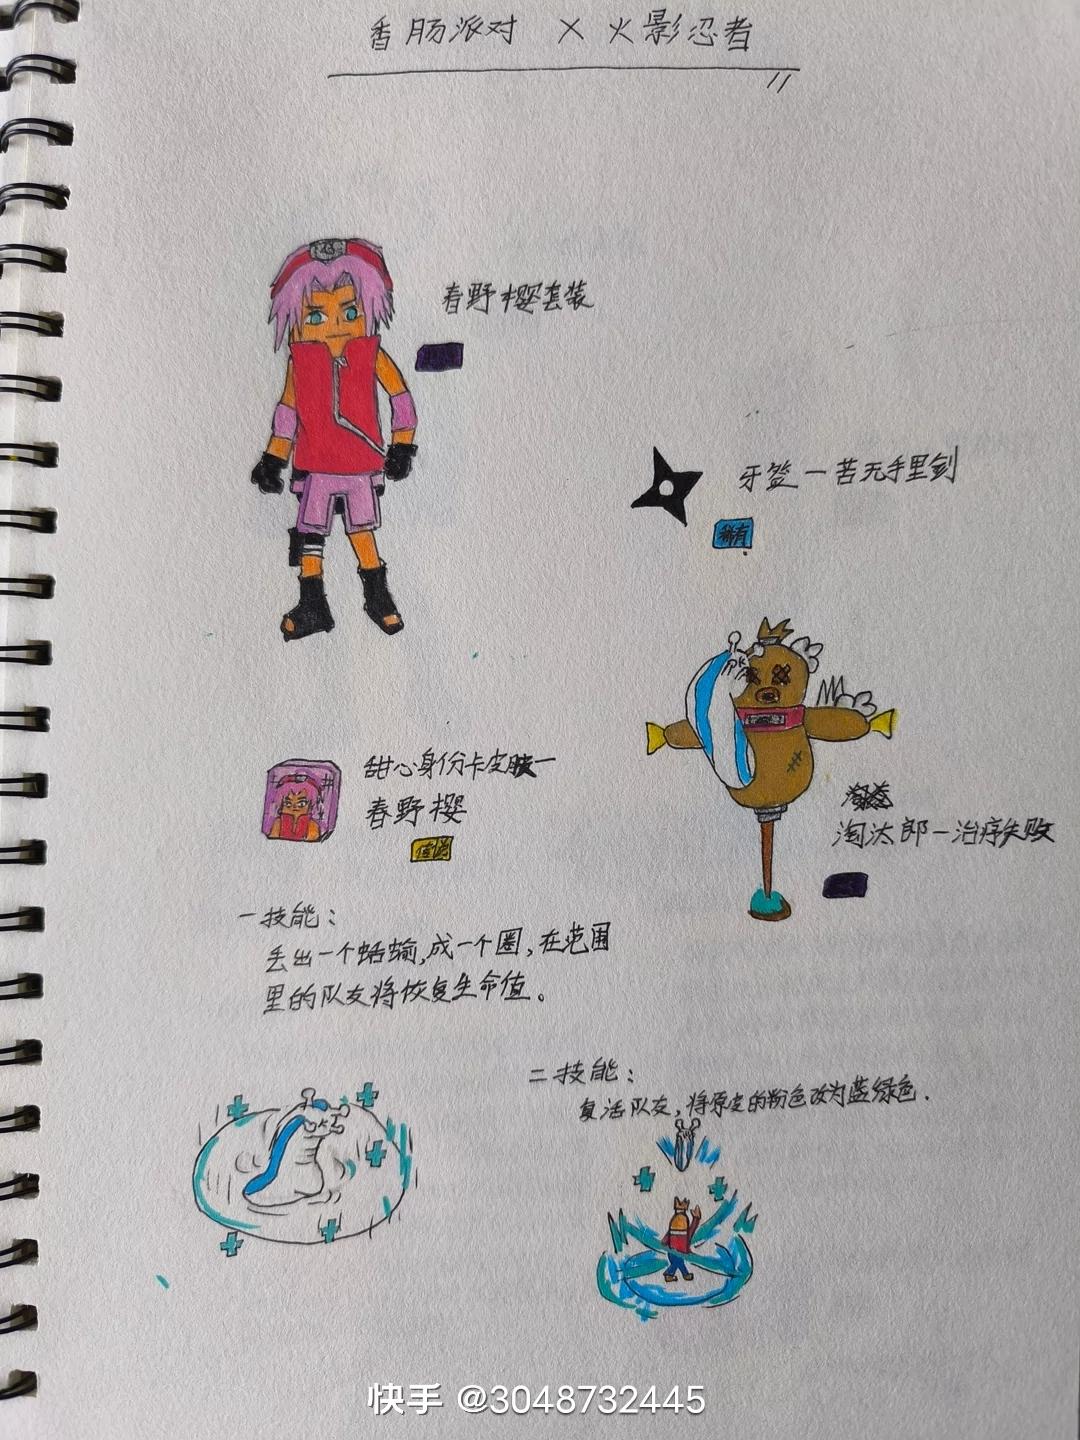 香肠派对 × 火影忍者
春野樱套装
牙签一苦无手里剑
稀有
甜心身份卡皮肤一
春野樱
淘汰郎一治疗失败
一技能：
丢出一个蛞蝓,成一个圈,在范围
里的队友将恢复生命值。
二技能：
复活队友,将原皮的粉色改为蓝绿色.
快手 @3048732445